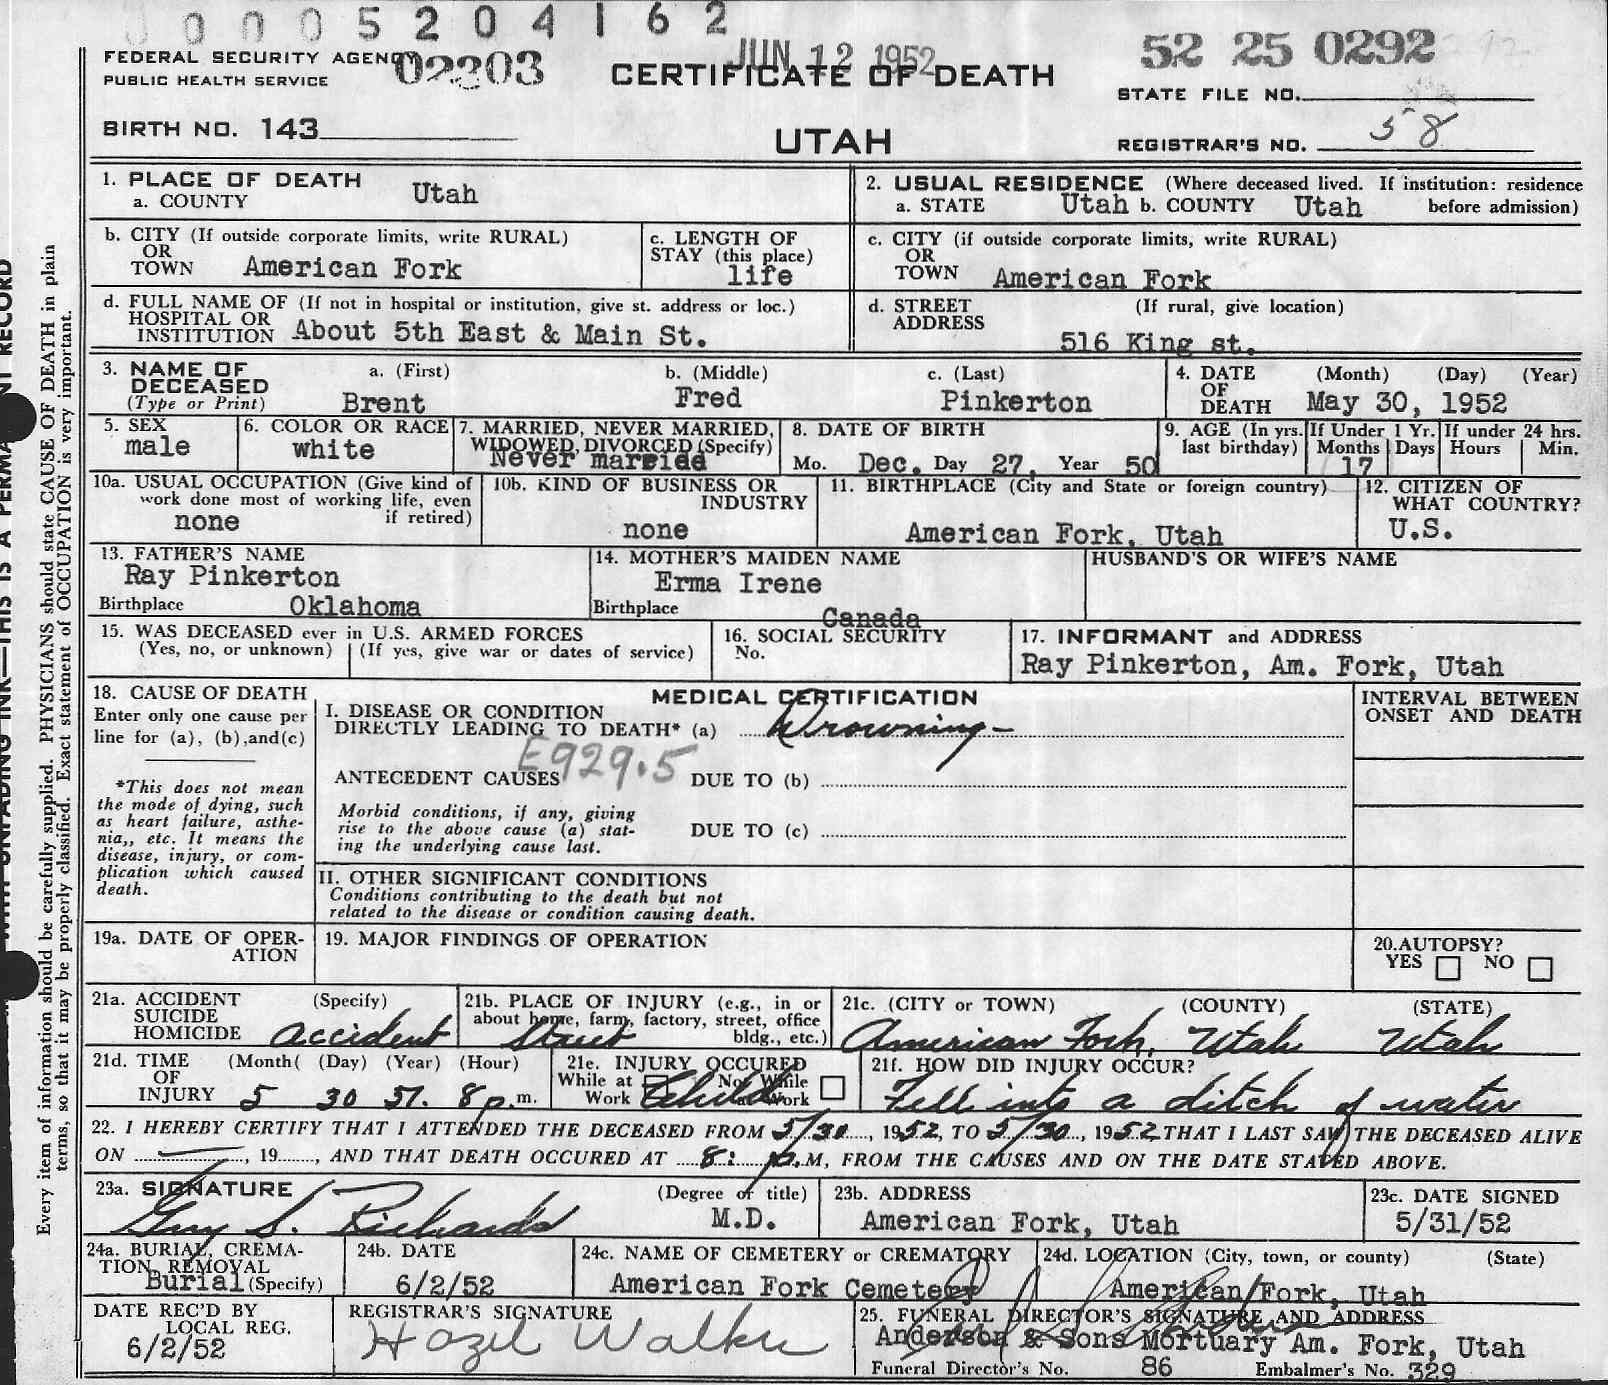 0005204162
FEDERAL SECURITY AGENCY 02203 JUN 12 1952 52 25 0292
PUBLIC HEALTH SERVICE CERTIFICATE OF DEATH STATE FILE NO.
BIRTH NO. 143 UTAH REGISTRAR'S NO. 58
1. PLACE OF DEATH
a. COUNTY Utah
2. USUAL RESIDENCE (Where deceased lived. If institution: residence
a. STATE Utah b. COUNTY Utah before admission)
b. CITY (If outside corporate limits, write RURAL)
OR
TOWN American Fork
c. LENGTH OF
STAY (this place)
life
c. CITY (if outside corporate limits, write RURAL)
OR
TOWN American Fork
d. FULL NAME OF (If not in hospital or institution, give st. address or loc.)
HOSPITAL OR
INSTITUTION About 5th East & Main St.
d. STREET (If rural, give location)
ADDRESS
516 King st.
3. NAME OF a. (First) b. (Middle) c. (Last)
DECEASED
(Type or Print) Brent Fred Pinkerton
4. DATE (Month) (Day) (Year)
OF
DEATH May 30, 1952
5. SEX
male
6. COLOR OR RACE
white
7. MARRIED, NEVER MARRIED,
WIDOWED, DIVORCED (Specify)
Never married
8. DATE OF BIRTH
Mo. Dec. Day 27, Year 50
9. AGE (In yrs. If Under 1 Yr. If under 24 hrs.
last birthday) Months Days Hours Min.
17
10a. USUAL OCCUPATION (Give kind of
work done most of working life, even
none if retired)
10b. KIND OF BUSINESS OR
INDUSTRY
none
11. BIRTHPLACE (City and State or foreign country)
American Fork, Utah
12. CITIZEN OF
WHAT COUNTRY?
U.S.
13. FATHER'S NAME
Ray Pinkerton
Birthplace Oklahoma
14. MOTHER'S MAIDEN NAME
Erma Irene
Birthplace Canada
HUSBAND'S OR WIFE'S NAME
15. WAS DECEASED ever in U.S. ARMED FORCES
(Yes, no, or unknown) (If yes, give war or dates of service)
16. SOCIAL SECURITY
No.
17. INFORMANT and ADDRESS
Ray Pinkerton, Am. Fork, Utah
18. CAUSE OF DEATH
Enter only one cause per
line for (a), (b),and(c)
*This does not mean
the mode of dying, such
as heart failure, asthe-
nia,, etc. It means the
disease, injury, or com-
plication which caused
death.
MEDICAL CERTIFICATION
I. DISEASE OR CONDITION
DIRECTLY LEADING TO DEATH* (a) Drowning -
E929.5
ANTECEDENT CAUSES DUE TO (b)
Morbid conditions, if any, giving
rise to the above cause (a) stat- DUE TO (c)
ing the underlying cause last.
II. OTHER SIGNIFICANT CONDITIONS
Conditions contributing to the death but not
related to the disease or condition causing death.
INTERVAL BETWEEN
ONSET AND DEATH
19a. DATE OF OPER-
ATION
19. MAJOR FINDINGS OF OPERATION
20.AUTOPSY?
YES NO
21a. ACCIDENT (Specify)
SUICIDE
HOMICIDE accident
21b. PLACE OF INJURY (e.g., in or
about home, farm, factory, street, office
Street bldg., etc.)
21c. (CITY or TOWN) (COUNTY) (STATE)
American Fork, Utah Utah
21d. TIME (Month( (Day) (Year) (Hour)
OF
INJURY 5 30 51. 8 p.m.
21e. INJURY OCCURED
While at Not While
Work Child at Work
21f. HOW DID INJURY OCCUR?
Fell into a ditch of water
22. I HEREBY CERTIFY THAT I ATTENDED THE DECEASED FROM 5/30, 1952, TO 5/30, 1952 THAT I LAST SAW THE DECEASED ALIVE
ON —, 19, AND THAT DEATH OCCURED AT 8: p.M, FROM THE CAUSES AND ON THE DATE STATED ABOVE.
23a. SIGNATURE (Degree or title)
Guy S. Richards M.D.
23b. ADDRESS
American Fork, Utah
23c. DATE SIGNED
5/31/52
24a. BURIAL, CREMA-
TION, REMOVAL
Burial (Specify)
24b. DATE
6/2/52
24c. NAME OF CEMETERY or CREMATORY
American Fork Cemetery
24d. LOCATION (City, town, or county) (State)
American Fork, Utah
DATE REC'D BY
LOCAL REG.
6/2/52
REGISTRAR'S SIGNATURE
Hazel Walker
25. FUNERAL DIRECTOR'S SIGNATURE AND ADDRESS
Anderson & Sons Mortuary Am. Fork, Utah
Funeral Director's No. 86 Embalmer's No. 329
Every item of information should be carefully supplied. PHYSICIANS should state CAUSE OF DEATH in plain
terms, so that it may be properly classified. Exact statement of OCCUPATION is very important.